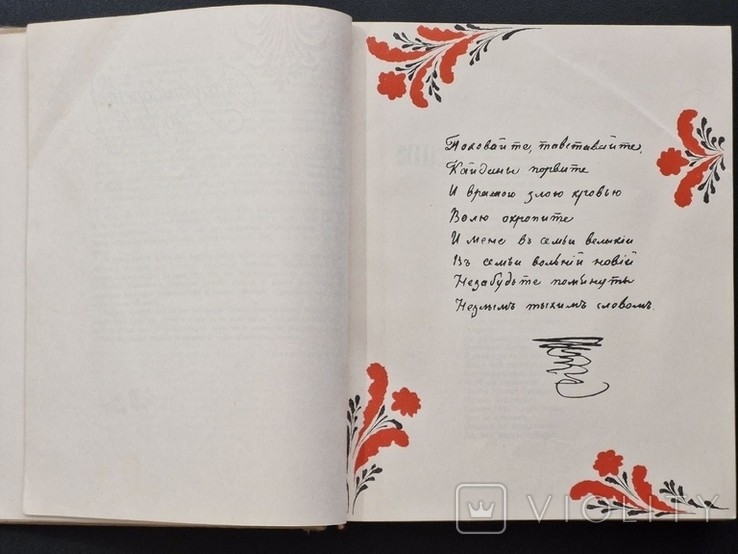 Поховайте, тавставайте,
Кайданы порвите
И вражою злою кровью
Волю окропите
И мене въ семьи великій
Въ семьи вольній новій
Незабудьте помянуты
Незлымъ тыхимъ словомъ.
VIOLITY